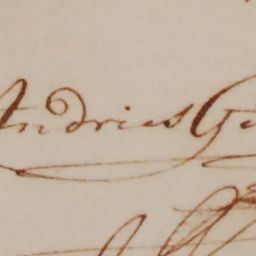 Andries Ge